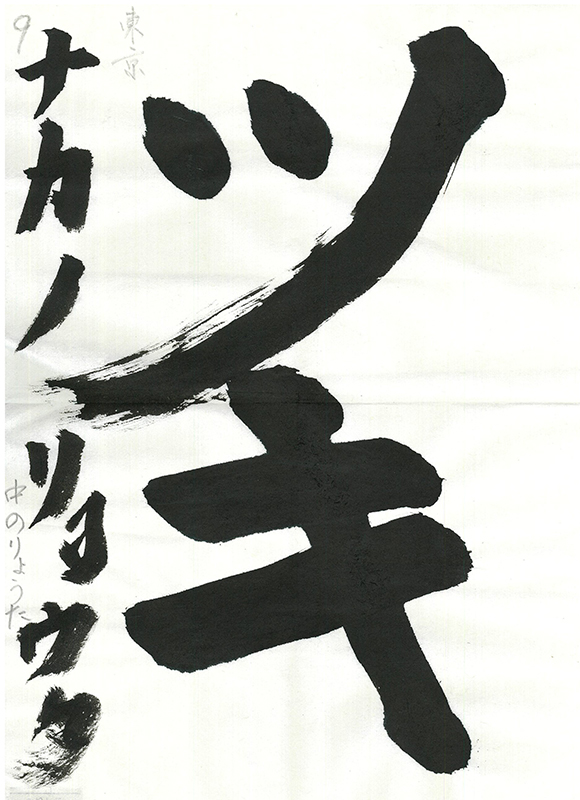 ツキ
東京
9
ナカノ リョウタ
中のりょうた